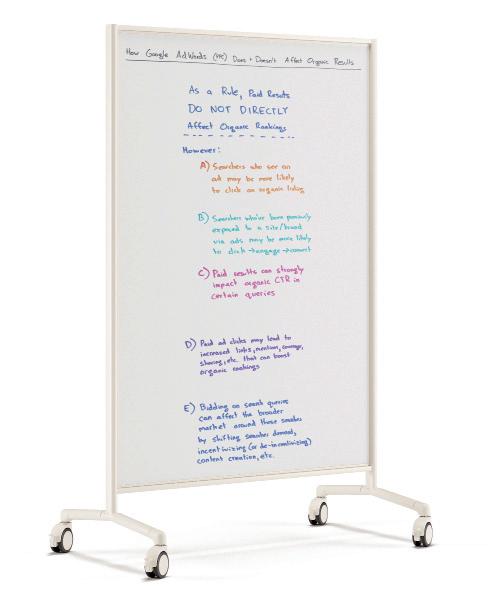 How Google AdWords (PPC) Does + Doesn't Affect Organic Results
As a Rule, Paid Results
DO NOT DIRECTLY
Affect Organic Rankings
However:
A) Searchers who see an
ad may be more likely
to click an organic listing
B) Searchers who've been previously
exposed to a site/brand
via ads may be more likely
to click → engage → convert
C) Paid results can strongly
impact organic CTR in
certain queries
D) Paid ad clicks may lead to
increased links, mentions, coverage,
sharing, etc. that can boost
organic rankings
E) Bidding on search queries
can affect the broader
market around those searches
by shifting searcher demand,
incentivizing (or de-incentivizing)
content creation, etc.